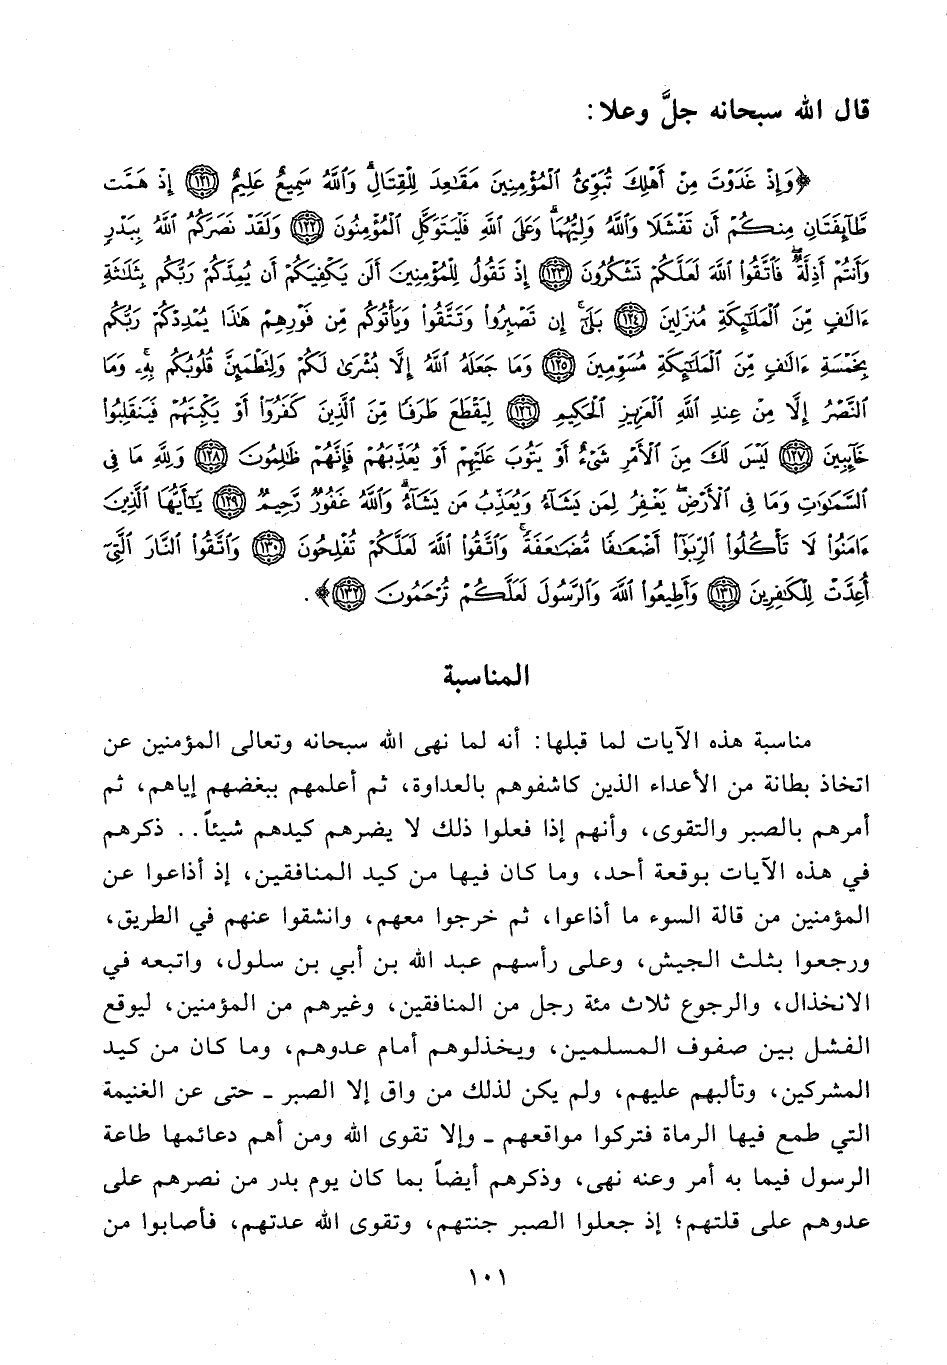 قال الله سبحانه جلَّ وعلا:
﴿وَإِذْ غَدَوْتَ مِنْ أَهْلِكَ تُبَوِّئُ ٱلْمُؤْمِنِينَ مَقَٰعِدَ لِلْقِتَالِ ۗ وَٱللَّهُ سَمِيعٌ عَلِيمٌ ١٢١ إِذْ هَمَّت
طَّآئِفَتَانِ مِنكُمْ أَن تَفْشَلَا وَٱللَّهُ وَلِيُّهُمَا ۗ وَعَلَى ٱللَّهِ فَلْيَتَوَكَّلِ ٱلْمُؤْمِنُونَ ١٢٢ وَلَقَدْ نَصَرَكُمُ ٱللَّهُ بِبَدْرٍ
وَأَنتُمْ أَذِلَّةٌ ۖ فَٱتَّقُوا۟ ٱللَّهَ لَعَلَّكُمْ تَشْكُرُونَ ١٢٣ إِذْ تَقُولُ لِلْمُؤْمِنِينَ أَلَن يَكْفِيَكُمْ أَن يُمِدَّكُمْ رَبُّكُم بِثَلَٰثَةِ
ءَالَٰفٍ مِّنَ ٱلْمَلَٰٓئِكَةِ مُنزَلِينَ ١٢٤ بَلَىٰٓ ۚ إِن تَصْبِرُوا۟ وَتَتَّقُوا۟ وَيَأْتُوكُم مِّن فَوْرِهِمْ هَٰذَا يُمْدِدْكُمْ رَبُّكُم
بِخَمْسَةِ ءَالَٰفٍ مِّنَ ٱلْمَلَٰٓئِكَةِ مُسَوِّمِينَ ١٢٥ وَمَا جَعَلَهُ ٱللَّهُ إِلَّا بُشْرَىٰ لَكُمْ وَلِتَطْمَئِنَّ قُلُوبُكُم بِهِۦ ۗ وَمَا
ٱلنَّصْرُ إِلَّا مِنْ عِندِ ٱللَّهِ ٱلْعَزِيزِ ٱلْحَكِيمِ ١٢٦ لِيَقْطَعَ طَرَفًا مِّنَ ٱلَّذِينَ كَفَرُوٓا۟ أَوْ يَكْبِتَهُمْ فَيَنقَلِبُوا۟
خَآئِبِينَ ١٢٧ لَيْسَ لَكَ مِنَ ٱلْأَمْرِ شَىْءٌ أَوْ يَتُوبَ عَلَيْهِمْ أَوْ يُعَذِّبَهُمْ فَإِنَّهُمْ ظَٰلِمُونَ ١٢٨ وَلِلَّهِ مَا فِى
ٱلسَّمَٰوَٰتِ وَمَا فِى ٱلْأَرْضِ ۚ يَغْفِرُ لِمَن يَشَآءُ وَيُعَذِّبُ مَن يَشَآءُ ۚ وَٱللَّهُ غَفُورٌ رَّحِيمٌ ١٢٩ يَٰٓأَيُّهَا ٱلَّذِينَ
ءَامَنُوا۟ لَا تَأْكُلُوا۟ ٱلرِّبَوٰٓا۟ أَضْعَٰفًا مُّضَٰعَفَةً ۖ وَٱتَّقُوا۟ ٱللَّهَ لَعَلَّكُمْ تُفْلِحُونَ ١٣٠ وَٱتَّقُوا۟ ٱلنَّارَ ٱلَّتِىٓ
أُعِدَّتْ لِلْكَٰفِرِينَ ١٣١ وَأَطِيعُوا۟ ٱللَّهَ وَٱلرَّسُولَ لَعَلَّكُمْ تُرْحَمُونَ ١٣٢﴾.
المناسبة
مناسبة هذه الآيات لما قبلها: أنه لما نهى الله سبحانه وتعالى المؤمنين عن
اتخاذ بطانة من الأعداء الذين كاشفوهم بالعداوة، ثم أعلمهم ببغضهم إياهم، ثم
أمرهم بالصبر والتقوى، وأنهم إذا فعلوا ذلك لا يضرهم كيدهم شيئاً.. ذكرهم
في هذه الآيات بوقعة أحد، وما كان فيها من كيد المنافقين، إذ أذاعوا عن
المؤمنين من قالة السوء ما أذاعوا، ثم خرجوا معهم، وانشقوا عنهم في الطريق،
ورجعوا بثلث الجيش، وعلى رأسهم عبد الله بن أبي بن سلول، واتبعه في
الانخذال، والرجوع ثلاث مئة رجل من المنافقين، وغيرهم من المؤمنين، ليوقع
الفشل بين صفوف المسلمين، ويخذلوهم أمام عدوهم، وما كان من كيد
المشركين، وتألبهم عليهم، ولم يكن لذلك من واق إلا الصبر ـ حتى عن الغنيمة
التي طمع فيها الرماة فتركوا مواقعهم ـ وإلا تقوى الله ومن أهم دعائمها طاعة
الرسول فيما به أمر وعنه نهى، وذكرهم أيضاً بما كان يوم بدر من نصرهم على
عدوهم على قلتهم؛ إذ جعلوا الصبر جنتهم، وتقوى الله عدتهم، فأصابوا من
١٠١